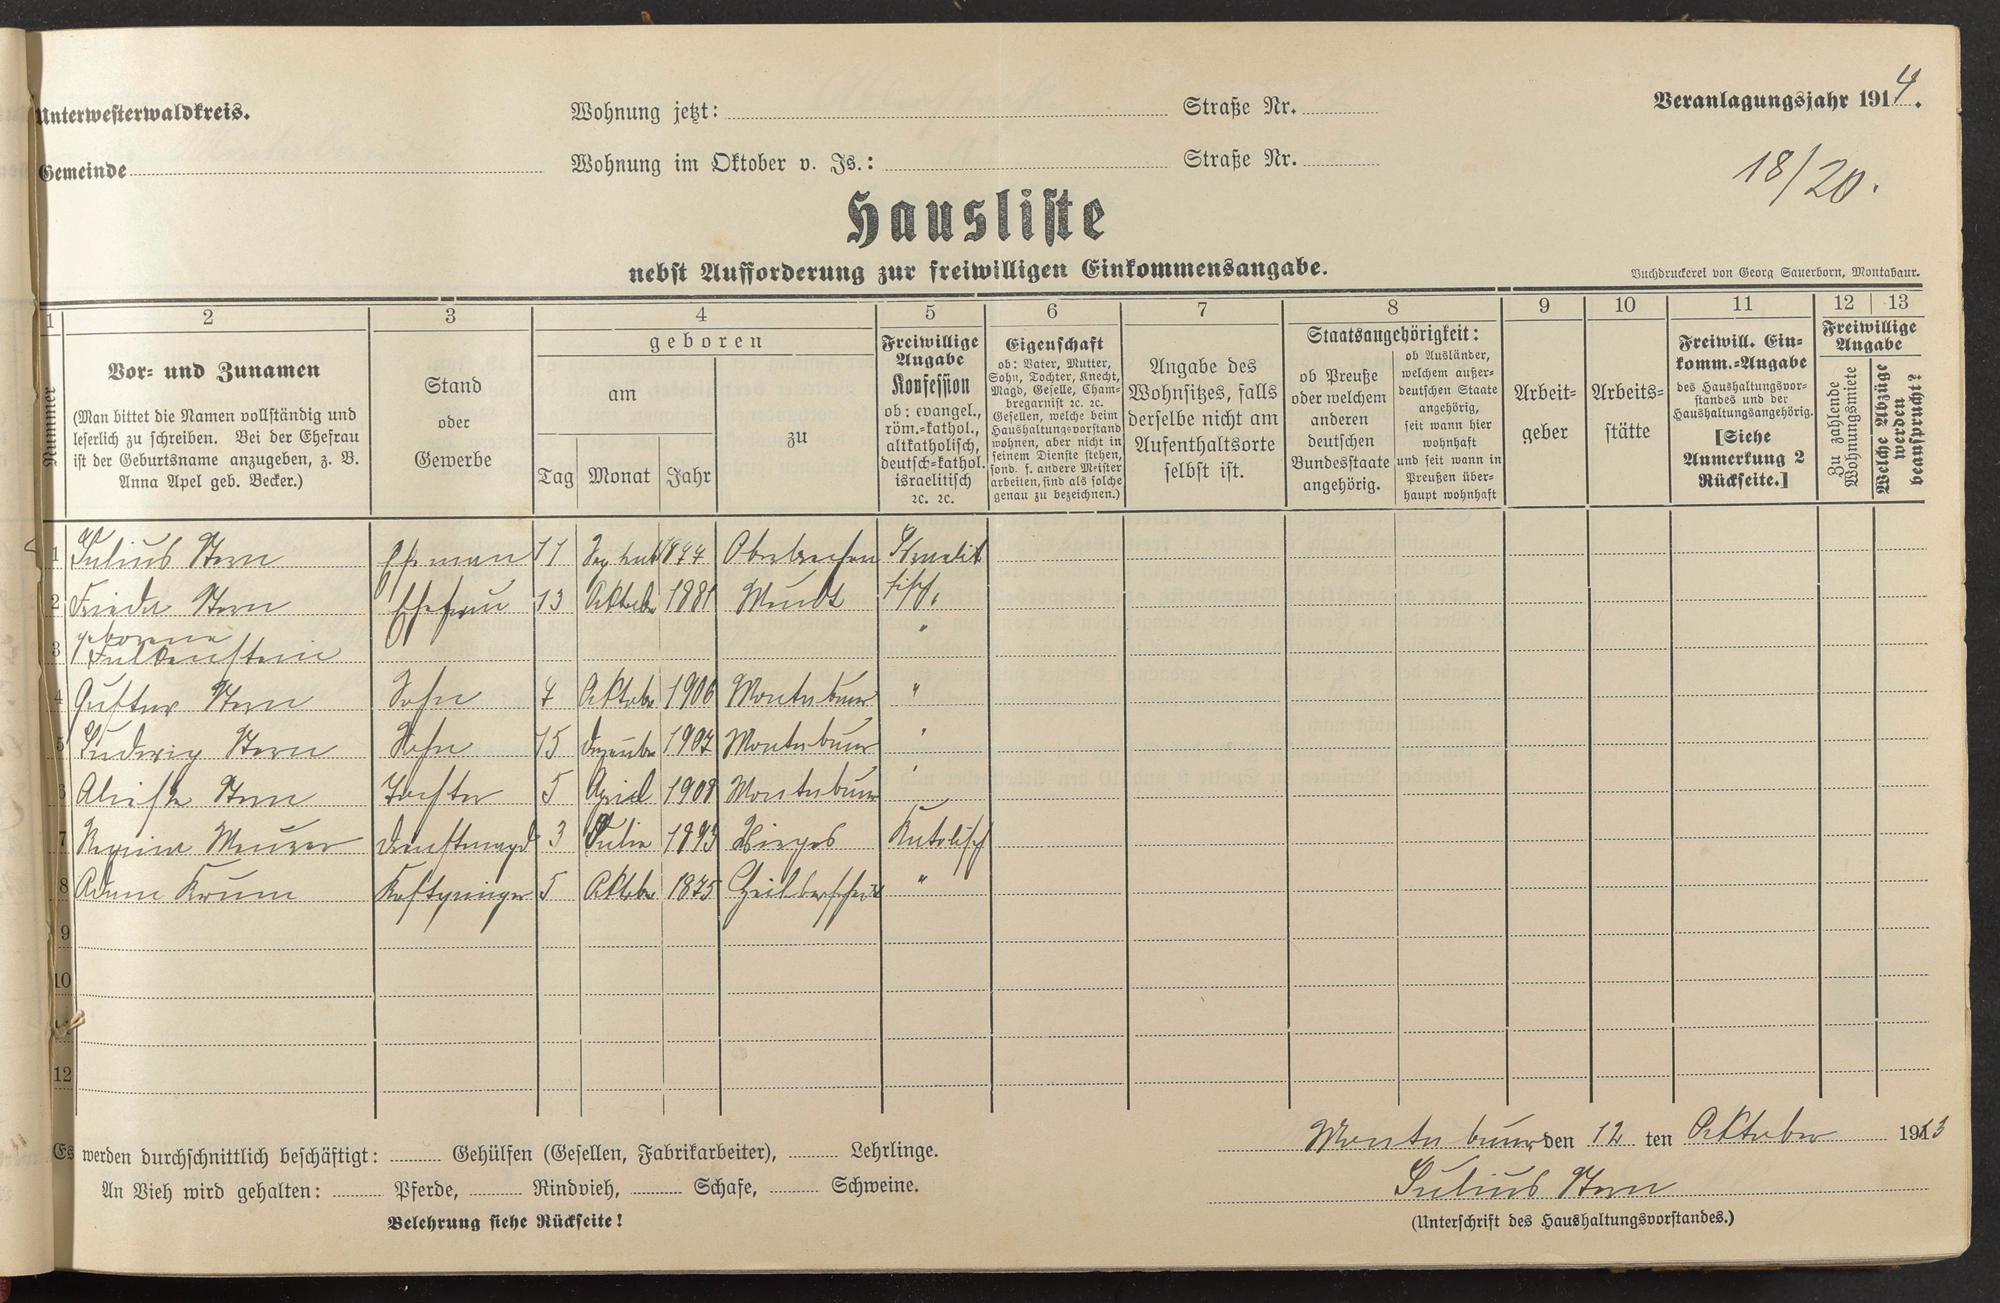 Unterwesterwaldkreis.
Wohnung jetzt: Straße Nr.
Veranlagungsjahr 1914.
Gemeinde
Wohnung im Oktober v. Js.: Straße Nr.
18/20.
Hausliste
nebst Aufforderung zur freiwilligen Einkommensangabe.
Buchdruckerei von Georg Sauerborn, Montabaur.
1 2 3 4 5 6 7 8 9 10 11 12 13
Nummer
Vor- und Zunamen
(Man bittet die Namen vollständig und
leserlich zu schreiben. Bei der Ehefrau
ist der Geburtsname anzugeben, z. B.
Anna Apel geb. Becker.)
Stand
oder
Gewerbe
geboren
am
Tag Monat Jahr
zu
Freiwillige
Angabe
Konfession
ob: evangel.,
röm.-kathol.,
altkatholisch,
deutsch-kathol.
israelitisch
ꝛc. ꝛc.
Eigenschaft
ob: Vater, Mutter,
Sohn, Tochter, Knecht,
Magd, Geselle, Cham-
bregarnist ꝛc. ꝛc.
Gesellen, welche beim
Haushaltungsvorstand
wohnen, aber nicht in
seinem Dienste stehen,
sond. f. andere Meister
arbeiten, sind als solche
genau zu bezeichnen.)
Angabe des
Wohnsitzes, falls
derselbe nicht am
Aufenthaltsorte
selbst ist.
Staatsangehörigkeit:
ob Preuße
oder welchem
anderen
deutschen
Bundesstaate
angehörig.
ob Ausländer,
welchem außer-
deutschen Staate
angehörig,
seit wann hier
wohnhaft
und seit wann in
Preußen über-
haupt wohnhaft
Arbeit-
geber
Arbeits-
stätte
Freiwill. Ein-
komm.-Angabe
des Haushaltungsvor-
standes und der
Haushaltungsangehörig.
[Siehe
Anmerkung 2
Rückseite.]
Freiwillige
Angabe
Zu zahlende
Wohnungsmiete
Welche Abzüge
werden
beansprucht?
1 Julius Stern Eheman 17 1877 Oberbrechen Israelit
2 Frieda Stern Ehefrau 13 Oktober 1881 isch.
geborene "
3 Falkenstein
4 Gustav Stern Sohn 7 Oktober 1906 Montabaur "
5 Ludwig Stern Sohn 15 Dezember 1907 Montabaur "
6 Stern Tochter 5 April 1908 Montabaur "
7 Regina Meurer Dienstmagd 3 Julie 1893 Wirges Katolisch
8 Adam Krum 5 Oktober 1875 "
9
10
11
12
Es werden durchschnittlich beschäftigt: Gehülfen (Gesellen, Fabrikarbeiter), Lehrlinge.
An Vieh wird gehalten: Pferde, Rindvieh, Schafe, Schweine.
Belehrung siehe Rückseite!
Montabaur, den 12 ten Oktober 1913
Julius Stern
(Unterschrift des Haushaltungsvorstandes.)